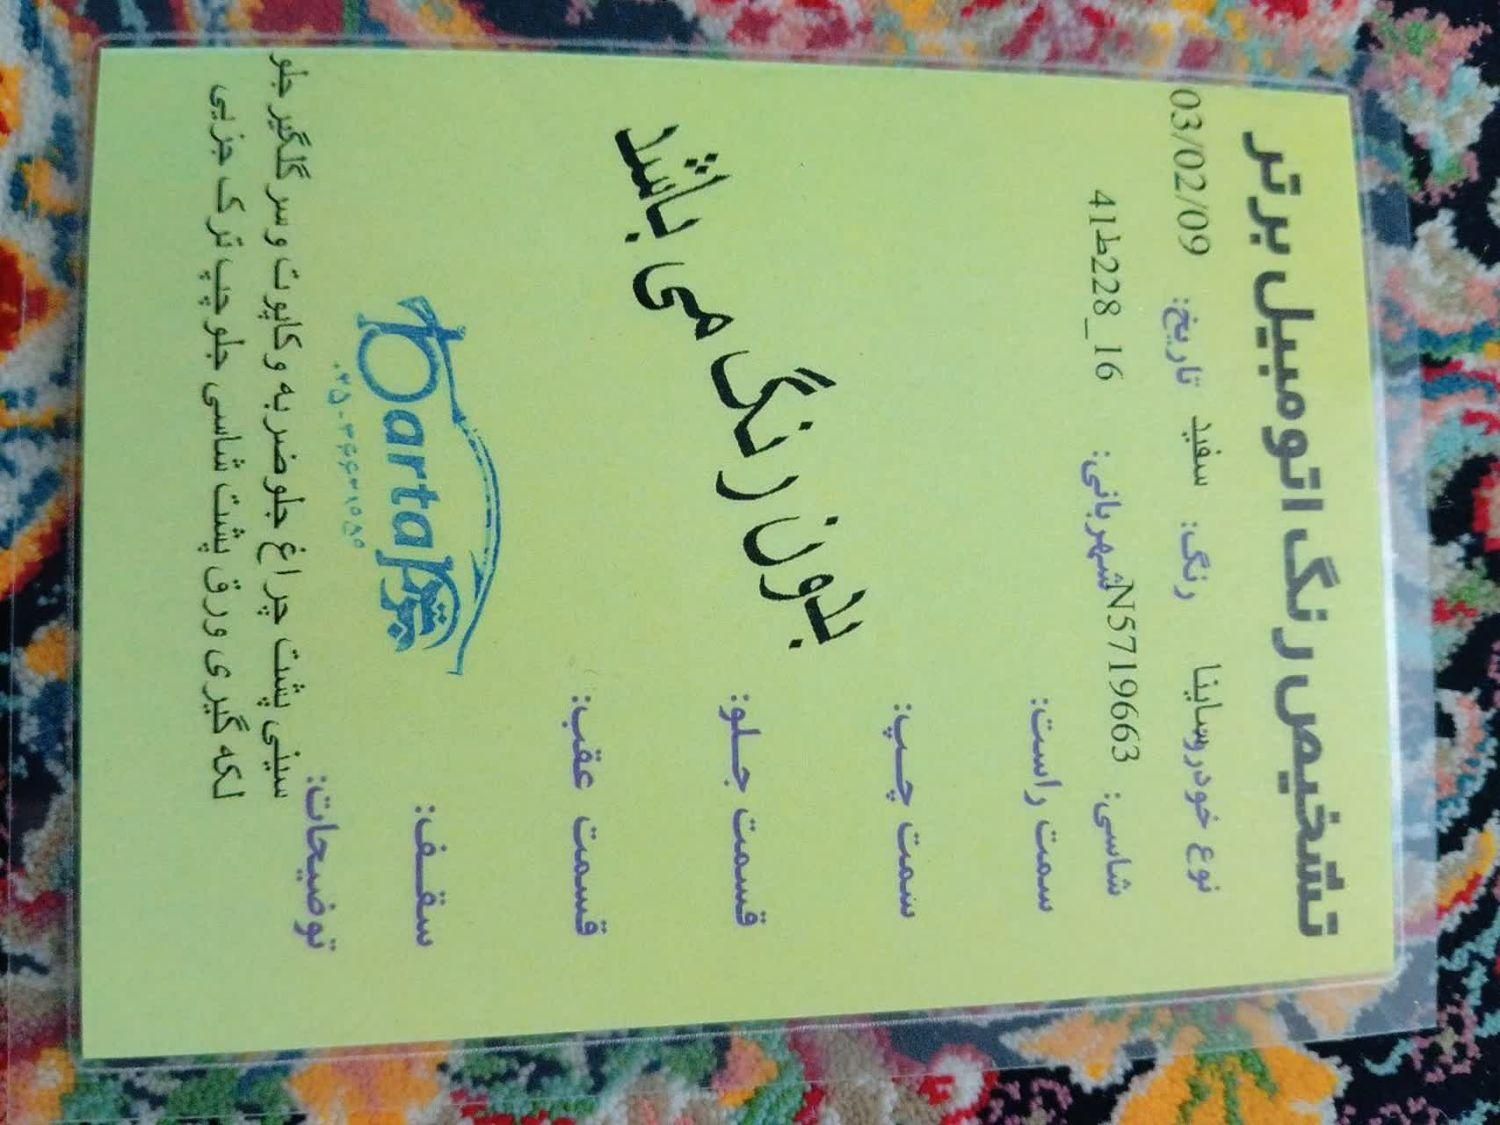 تشخیص رنگ اتومبیل برتر
نوع خودرو: ساینا رنگ: سفید تاریخ: 03/02/09
شاسی: N5719663 شهربانی: 41ط228_16
سمت راست:
سمت چپ:
قسمت جلو:
قسمت عقب:
سقف:
بدون رنگ می باشد
barta برتر
۰۲۵-۳۶۶۲۱۵۵۰
توضیحات:
سینی پشت چراغ جلو ضربه و کاپوت و سر گلگیر جلو
لکه گیری ورق پشت شاسی جلو چپ ترک جزیی